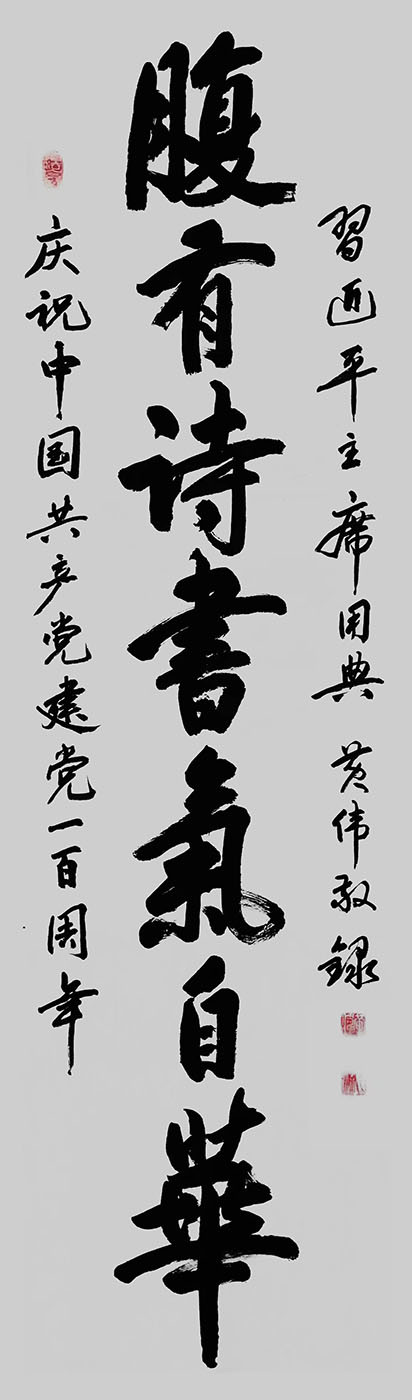 習近平主席用典 黄伟敬録
腹有诗書氣自華
庆祝中国共产党建党一百周年